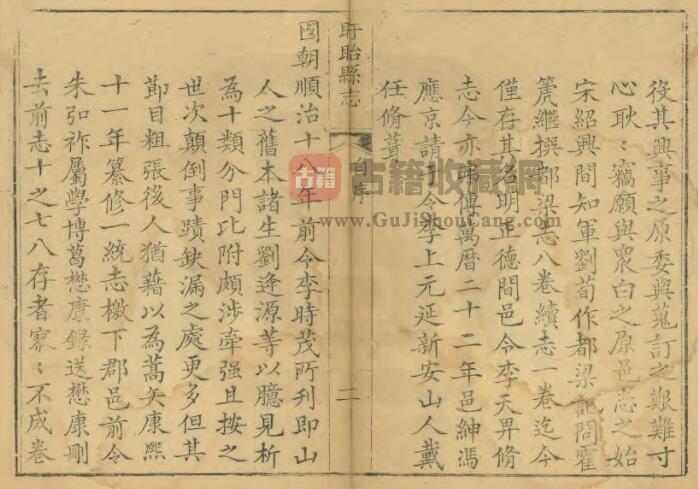 役其興事之原委與蒐訂之艱難寸
心耿〻竊願與衆白之原邑志之始
宋紹興間知軍劉荀作都梁記問霍
篪繼撰都梁志八卷續志一卷迄今
僅存其名明正德間邑令李天畀脩
志今亦弗傳萬曆二十二年邑紳馮
應京請于令李上元延新安山人戴
任脩葺
盱眙縣志
自序
二
國朝順治十八年前令李時茂所刊即山
人之舊本諸生劉逢源等以臆見析
為十類分門比附頗涉牽强且按之
世次顛倒事蹟缺漏之處更多但其
節目粗張後人猶藉以為蒿矢康熙
十一年纂修一統志檄下郡邑前令
朱弘祚屬學博葛懋康錄送懋康刪
去前志十之七八存者寥〻不成卷
古籍
古籍收藏网
www.GuJiShouCang.com